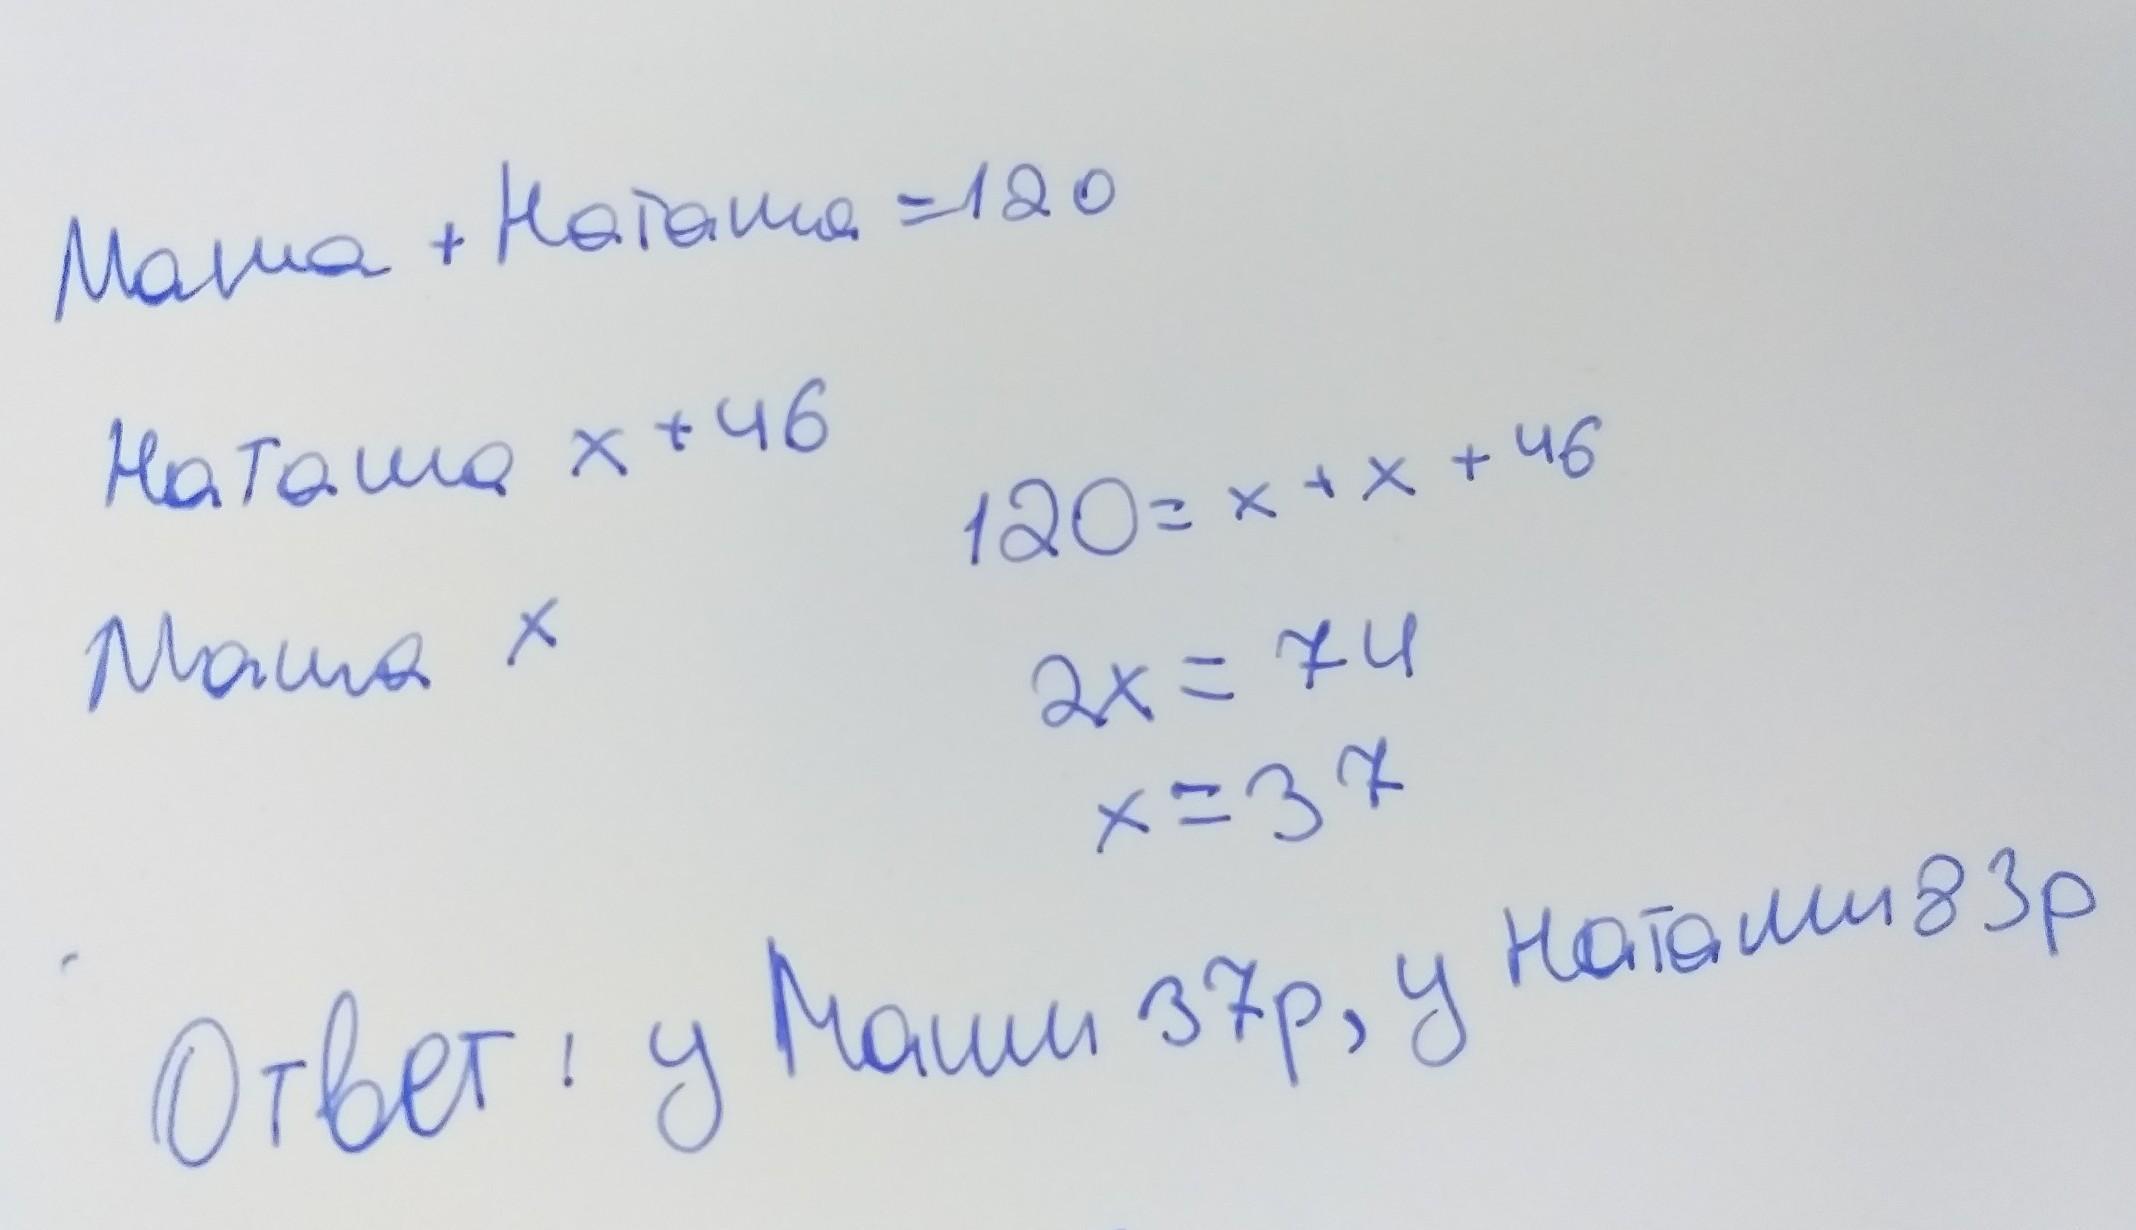 Маша + Наташа = 120
Наташа x + 46
120 = x + x + 46
Маша x
2x = 74
x = 37
Ответ: у Маши 37р, у Наташи 83р